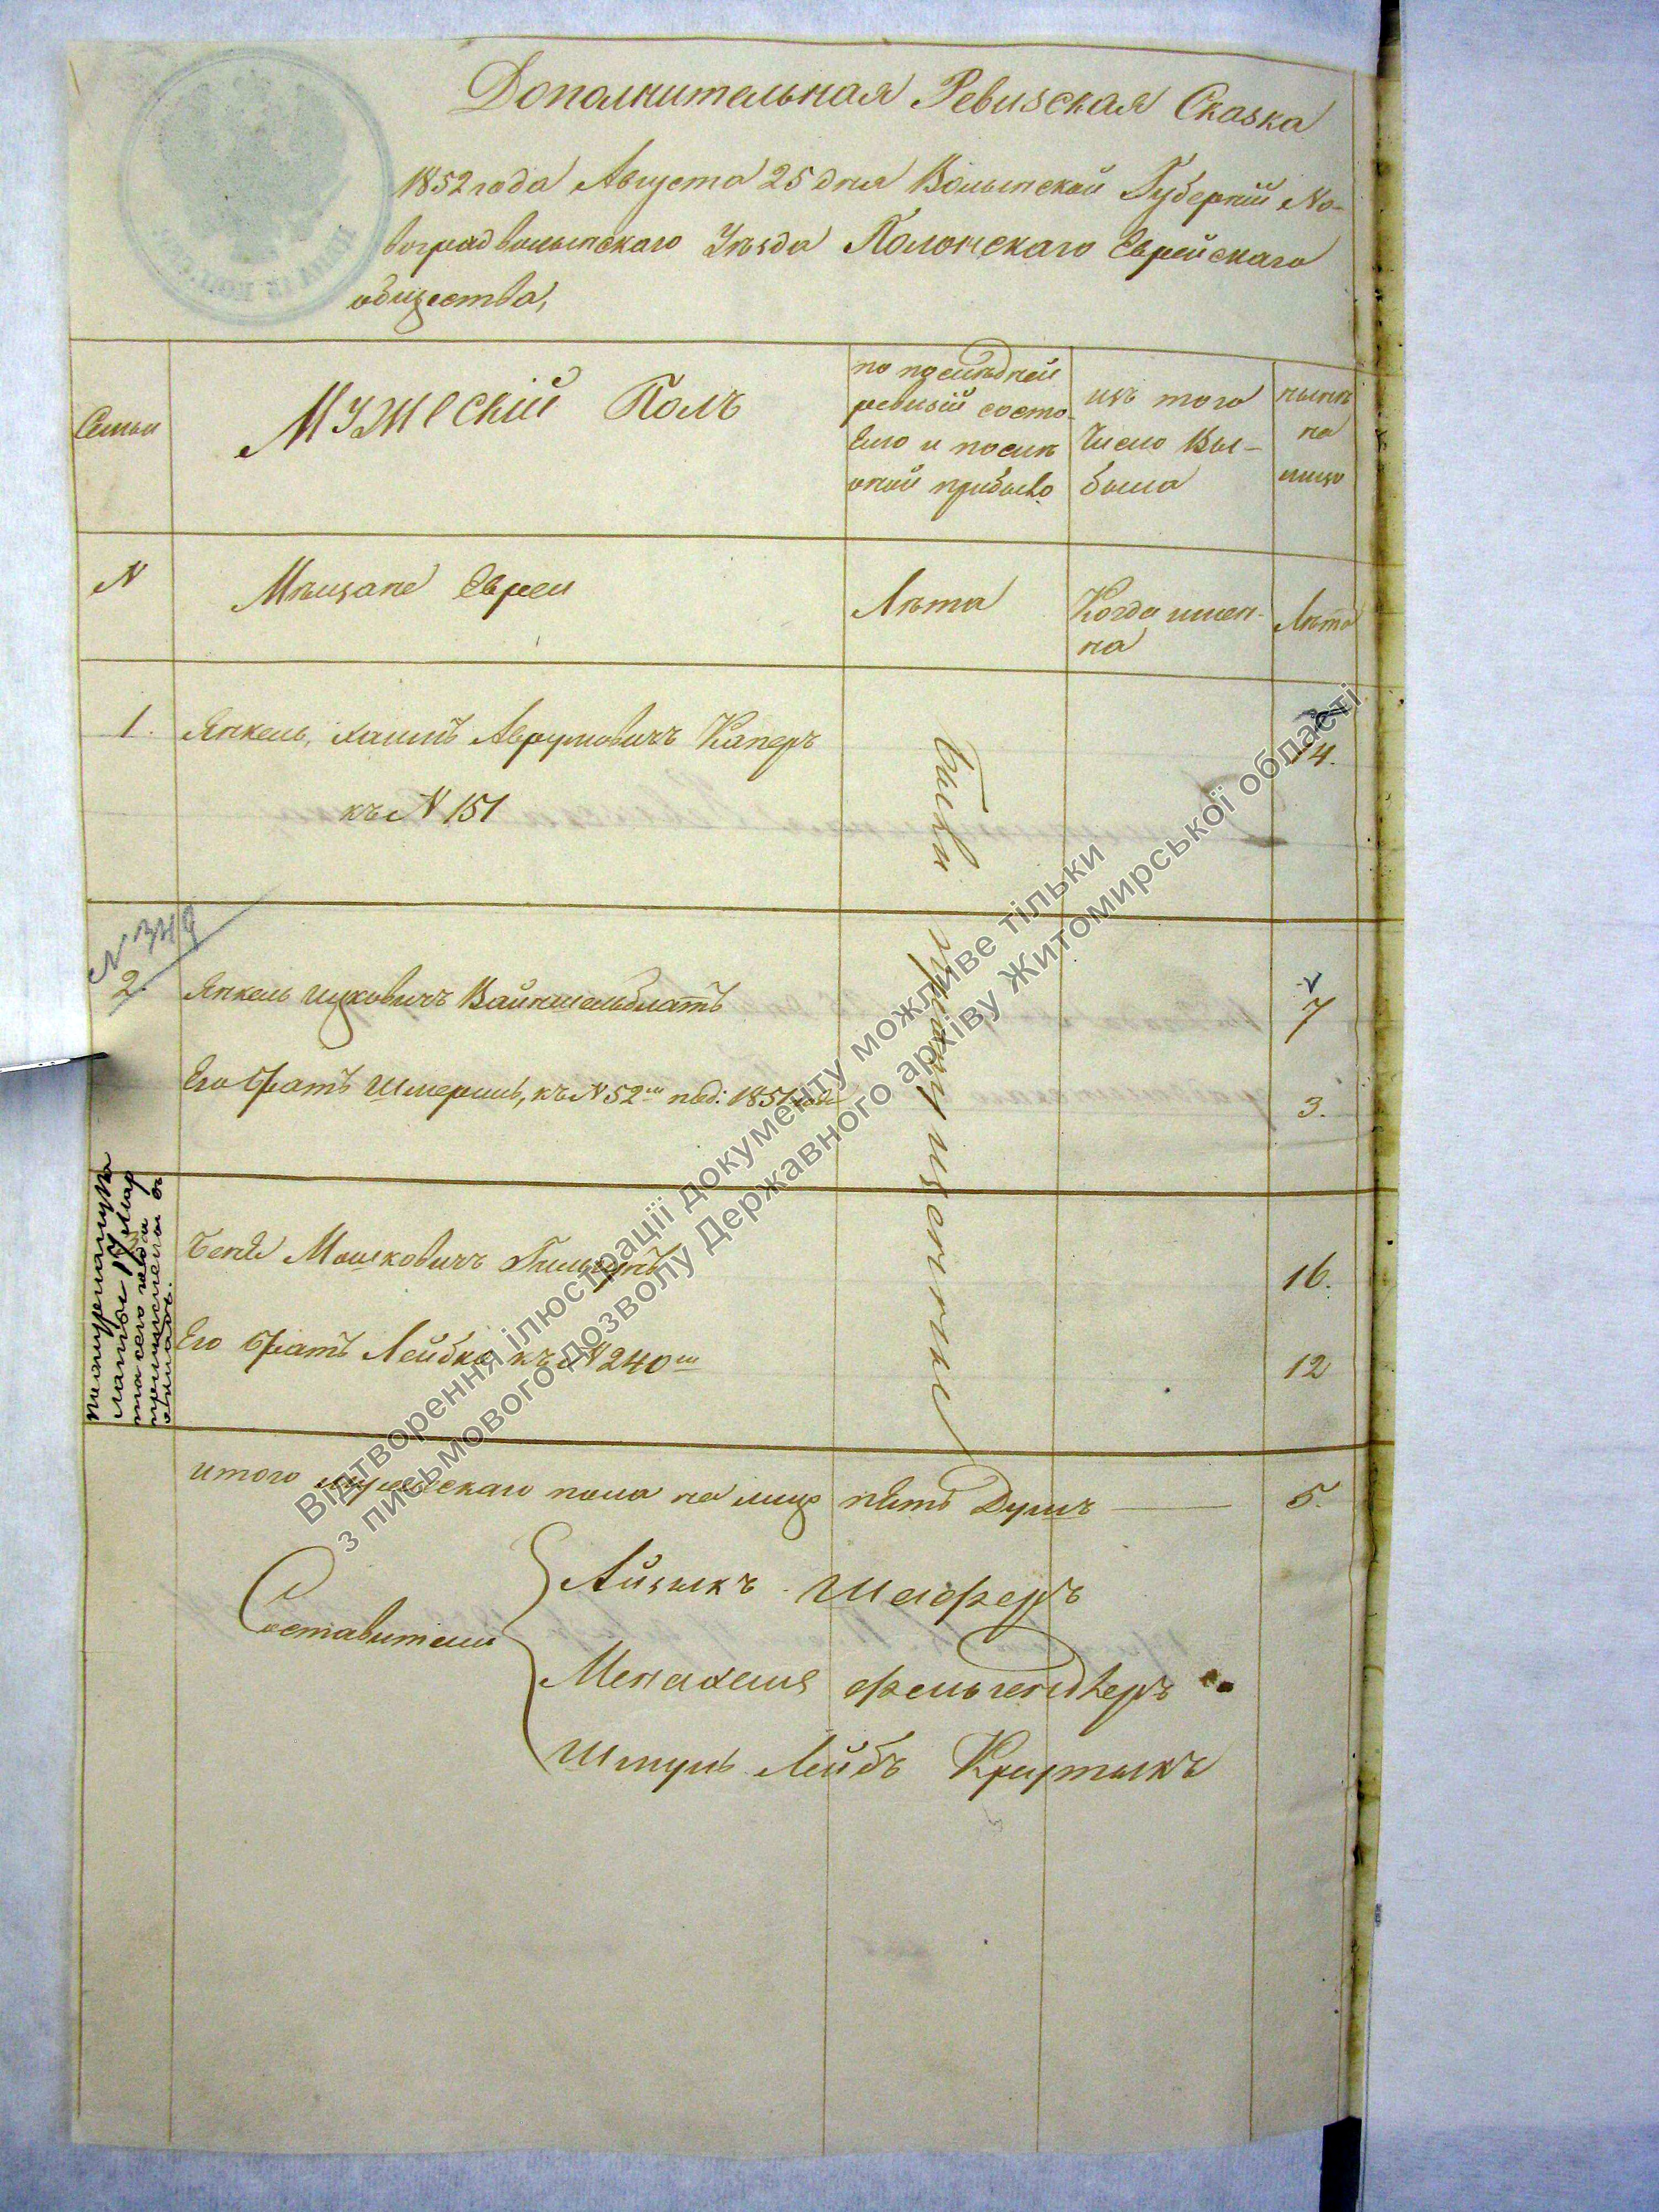 Дополнительная Ревизская Сказка
1852 года Августа 25 дня Волынской Губерніи Но-
воградволынскаго Уѣзда Полонскаго Еврейскаго
общества,
Семьи
Мужескій Полъ
по послѣдней
ревизіи состо-
яло и послѣ
оной прибыло
изъ того
Числа Вы-
было
нынѣ
на
лицо
N
Мѣщане Евреи
Лѣта
Когда имен-
но
Лѣта
1.
Янкель, хаимъ Аврумовичъ Каперъ
14.
къ N 151
были пропущенные
N 349
2.
Янкель Ицковичъ Вайншельблатъ
7
Его братъ Шмериль, къ N 52 1851 года
3.
Беня Мошковичъ
16.
Его братъ Лейбка къ N 240
12
итого мужескаго пола на лицо пять Душъ
5.
Составители
Айзыкъ Шаферъ
Менахемъ Фельгендлеръ
Шмуль Лейбъ Крутыкъ
Відтворення ілюстрації документу можливе тільки
з письмового дозволу Державного архіву Житомирської області